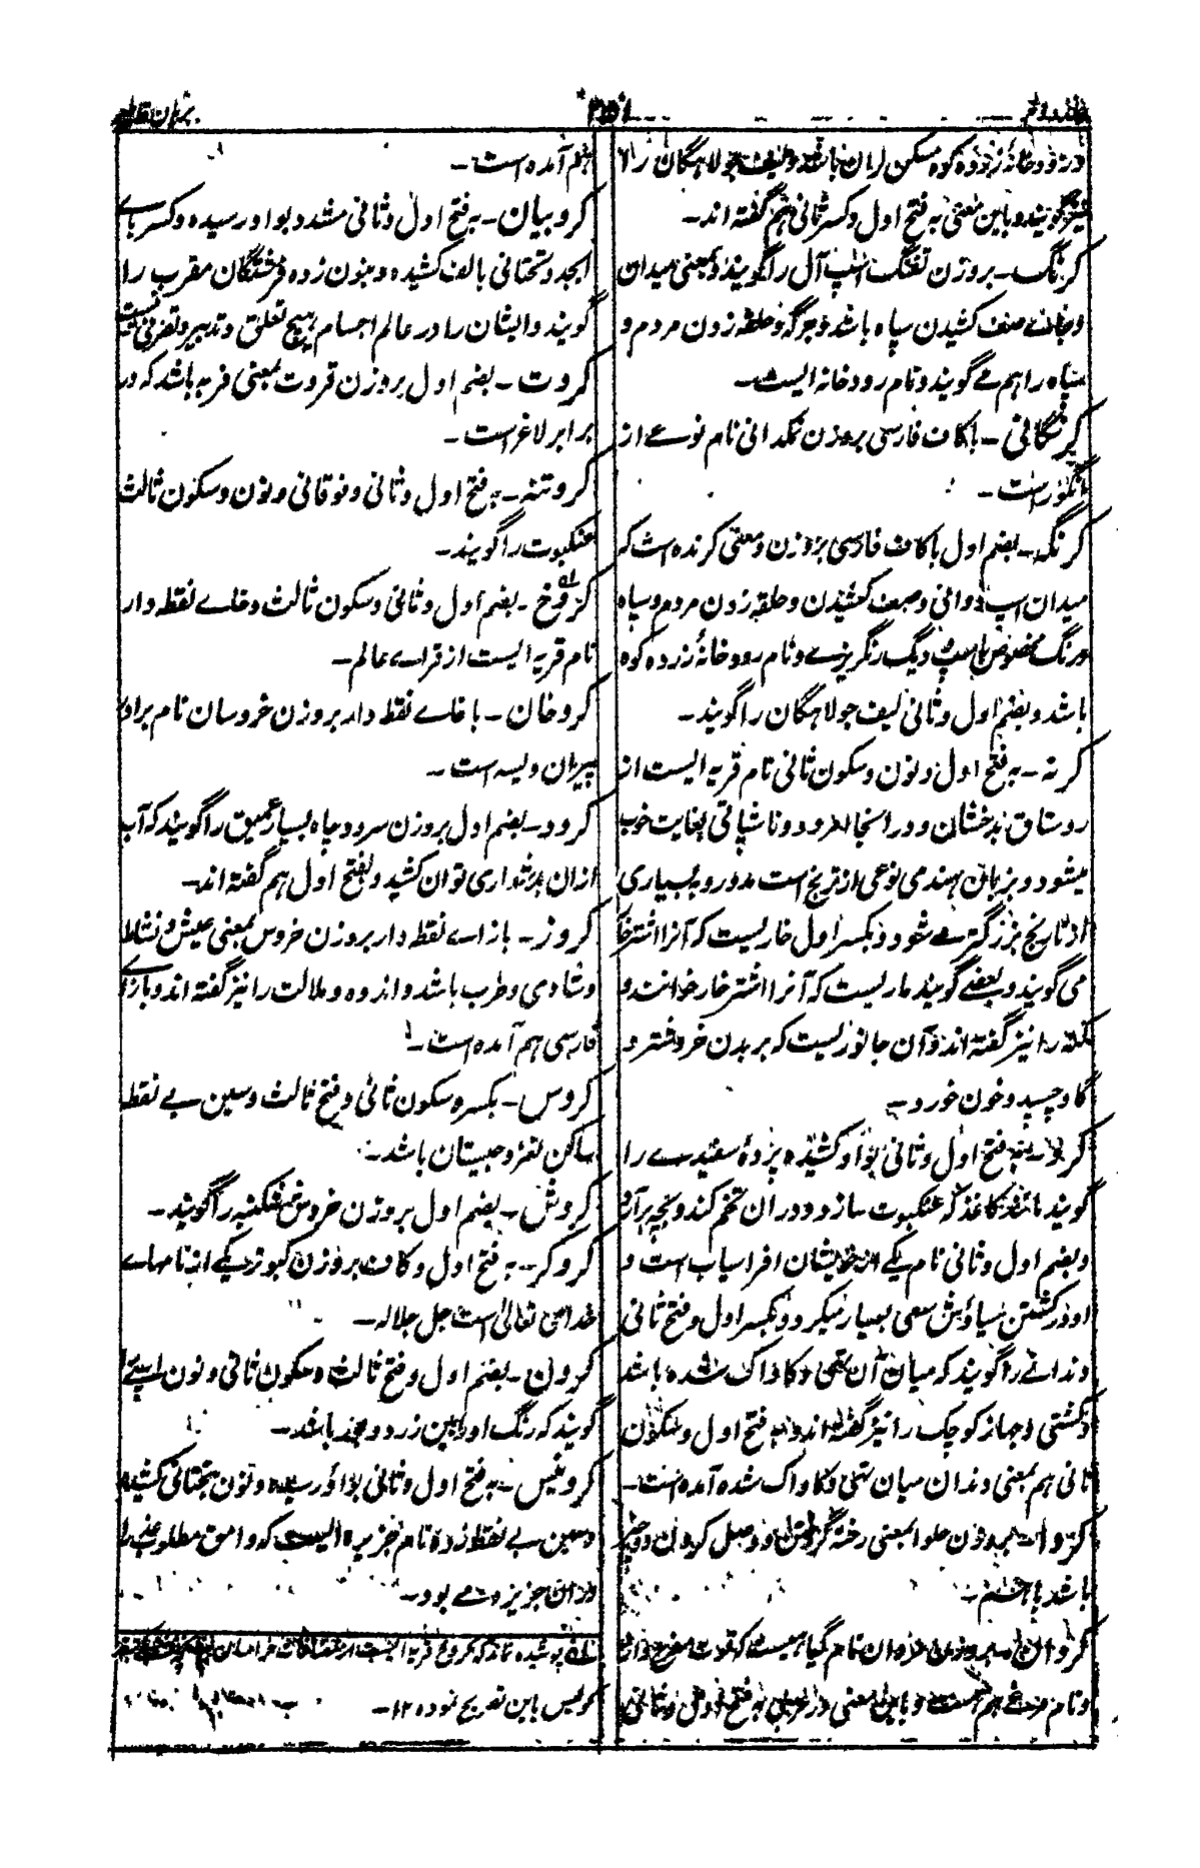 جلد دوم
برهان قاطع
و رودخانهٔ زرده کوه مسکن لران باشد و لیف جولاهگان را
نیز گویند و باین معنی بفتح اول و کسر ثانی هم گفته اند ـ
کرنگ ـ بروزن تفنگ اسپ آل را گویند و بمعنی میدان
و جائے صف کشیدن سپاه باشد و جرگه و حلقه زدن مردم و
سپاه را هم مے گویند و نام رودخانه ایست ـ
کرنگانی ـ باکاف فارسی بروزن نمکدانی نام نوعے از
انگور است ـ
کرنگه ـ بضم اول باکاف فارسی بروزن و معنی کرنده است که
میدان اسپ دوانی و صف کشیدن و حلقه زدن مردم و سپاه
و رنگ مخصوص باسپ و دیگ رنگریزے و نام رودخانهٔ زرده کوه
باشد و بضم اول و ثانی لیف جولاهگان را گویند ـ
کرنه ـ بفتح اول و نون و سکون ثانی نام قریه ایست از
روستاق بدخشان و در انجا امرود و ناشپاتی بغایت خوب
میشود و بزبان هندی نوعی از ترنج است مدور و بسیاری
از نارنج بزرگتر مے شود و بکسر اول خاریست که آنرا اشترخار
می گویند و بعضے گویند ماریست که آنرا اشترخار خوانند و
کنه را نیز گفته اند و آن جانوریست که بر بدن خر و شتر و
گاو چسپد و خون خورد ـ
کرو ـ بفتح اول و ثانی بواو کشیده پردهٔ سفیدے را
گویند مانند کاغذ که عنکبوت سازد و در ان تخم کند و بچه برآرد
و بضم اول و ثانی نام یکے از خویشان افراسیاب است و
او در کشتن سیاوش سعی بسیار میکرد و بکسر اول و فتح ثانی
دندانے را گویند که میان آن تهی و کاواک شده باشد
و کشتی و جهاز کوچک را نیز گفته اند و بفتح اول و سکون
ثانی هم بمعنی دندان میان تهی و کاواک شده آمده است ـ
کروا ـ بروزن حلوا بمعنی رخنه و وصل کردن دو چیز
باشد باهم ـ
کروان ـ بروزن نام گیاهیست که قوت مفرح دارد
و نام مرغے هم هست و باین معنی در عربی بفتح اول و ثانی
هم آمده است ـ
کروبیان ـ بفتح اول و ثانی مشدد بواو رسیده و کسر باے
ابجد و تحتانی بالف کشیده و بنون زده فرشتگان مقرب را
گویند و ایشان را در عالم اجسام هیچ تعلق و تدبیر و تصرفی نیست
کروت ـ بضم اول بروزن قروت بمعنی فربه باشد که در
برابر لاغر است ـ
کروتنه ـ بفتح اول و ثانی و فوقانی و نون و سکون ثالث
عنکبوت را گویند ـ
کروخ ـ بضم اول و ثانی و سکون ثالث و خاے نقطه دار
نام قریه ایست از قراے عالم ـ
کروخان ـ با خاے نقطه دار بروزن خروسان نام برادر
پیران ویسه است ـ
کرود ـ بضم اول بروزن سرود چاه بسیار عمیق را گویند که آب
از ان بدشواری توان کشید و بفتح اول هم گفته اند ـ
کروز ـ بازاے نقطه دار بروزن خروس بمعنی عیش و نشاط
و شادی و طرب باشد و اندوه و ملالت را نیز گفته اند و بازاے
فارسی هم آمده است ـ
کروس ـ بکسر و سکون ثانی و فتح ثالث و سین بے نقطه
ساکن لغز و چیستان باشد ـ
کروش ـ بضم اول بروزن خروش شکنبه را گویند ـ
کروکر ـ بفتح اول و کاف بروزن کبوتر یکے از نامهاے
خدای تعالی است جل جلاله ـ
کرون ـ بضم اول و فتح ثالث و سکون ثانی و نون اسپے را
گویند که رنگ او مابین زرد و بور باشد ـ
کرونیس ـ بفتح اول و ثانی بواو رسیده و نون بتحتانی کشیده
و سین بے نقطه زده نام جزیره ایست که وامق مطلوب عذرا
در ان جزیره مے بود ـ
پوشیده نماند که کروخ قریه ایست از مضافات خراسان
نویس باین تصریح نموده ۱۲ ـ